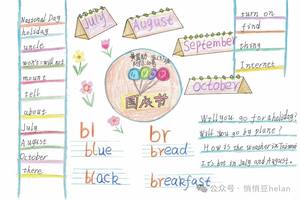 National Day
holiday
uncle
won't=will not
mount
tell
about
July
August
October
there
July
August
September
October
turn on
find
thing
Internet
国庆节
bl
blue
black
br
bread
breakfast
Will you go for a holiday?
Will you go by plane?
How is the weather in
It's hot in July and August.
公众号 · 悄悄豆helan